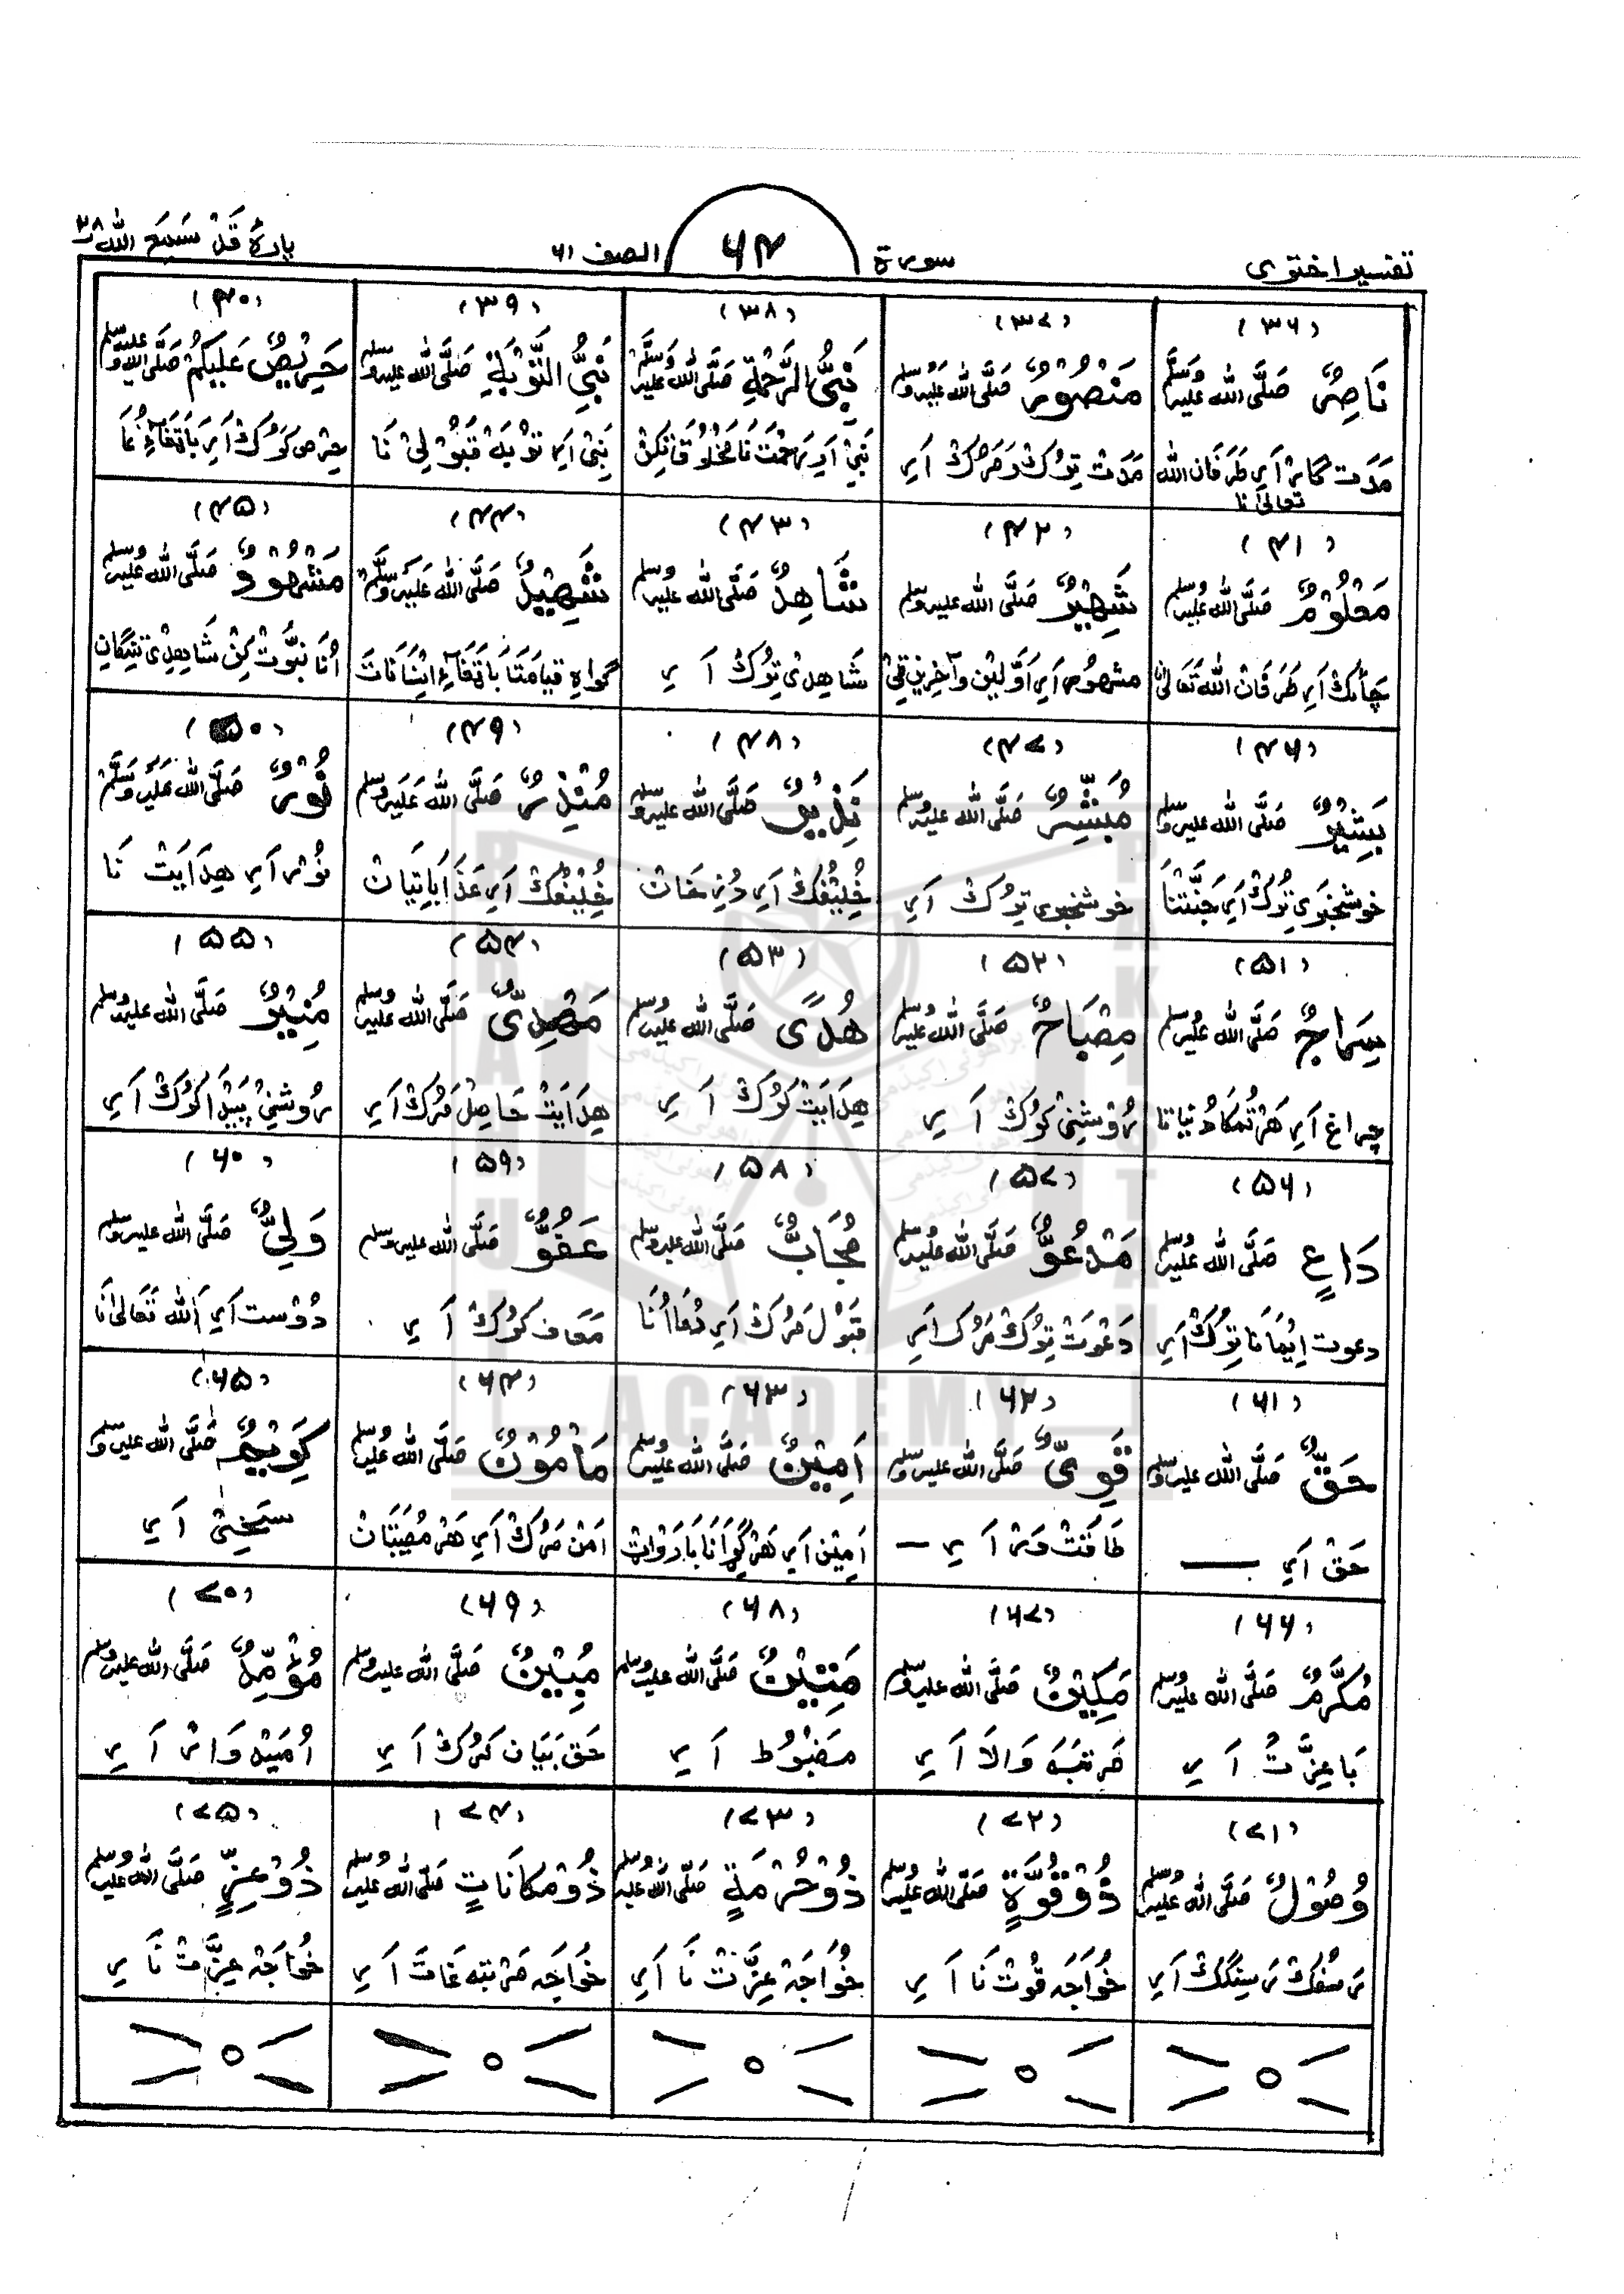 تفسیر اختری
سورة
۶۴
الصف ۶۱
پارۂ قَدْ سَمِعَ اللہ ۲۸
(۳۶)
نَاصِرٌ صَلَّی اللہ علیہ وَسَلَّم
مَدَت کار اَیر طَرَفَان اللہ تعالیٰ نا
(۳۷)
مَنْصُورٌ صَلَّی اللہ عَلَیہ وسلم
مَدَتْ تِرُکْ اَیر
(۳۸)
نَبِیُّ الرَّحْمَةِ صَلَّی اللہ علیہ وَسَلَّم
نَبِیْ اَیر رَحْمَتْ نَا مَخْلُوْقَاتِکِنْ
(۳۹)
نَبِیُّ التَّوْبَةِ صَلَّی اللہ علیہ وسلم
نَبِیْ اَیر تَوْبَہْ قَبُوْلِیْ نَا
(۴۰)
حَرِیْصٌ عَلَیْکُمْ صَلَّی اللہ علیہ وسلم
حِرْص کَرُکْ اَیر
(۴۱)
مَعْلُوْمٌ صَلَّی اللہ عَلَیہ وسلم
چَاہُکْ اَیر طَرَفَانْ اللہ تَعَالیٰ نا
(۴۲)
شَهِیْرٌ صَلَّی اللہ علیہ وسلم
مشہور اَیر اَوَّلِیْن وآخِرِیْن ٹی
(۴۳)
شَاهِدٌ صَلَّی اللہ علیہ وسلم
شَاهِدِیْ تِرُکْ اَیر
(۴۴)
شَهِیْدٌ صَلَّی اللہ عَلَیہ وَسَلَّم
گواہ قیامَتَا اِنْسَانَاتَ
(۴۵)
مَشْهُوْدٌ صَلَّی اللہ علیہ وسلم
اُنَا نُبُوَّتْ کِنْ شَاہِدِیْ
(۴۶)
بَشِیْرٌ صَلَّی اللہ علیہ وسلم
خوشخبری تِرُکْ اَیر جَنَّتْنَا
(۴۷)
مُبَشِّرٌ صَلَّی اللہ علیہ وسلم
خوشخبری تِرُکْ اَیر
(۴۸)
نَذِیْرٌ صَلَّی اللہ علیہ وسلم
خُلِیْفُکْ اَیر دُزَخَانْ
(۴۹)
مُنْذِرٌ صَلَّی اللہ عَلَیہ وسلم
خُلِیْفُکْ اَیر عَذَابَاتِیَانْ
(۵۰)
نُوْرٌ صَلَّی اللہ عَلَیہ وَسَلَّم
نُوْر اَیر هِدَایَتْ نَا
(۵۱)
سِرَاجٌ صَلَّی اللہ علیہ وسلم
چراغ اَیر هَرْ تُمَکَا دُنیَا نا
(۵۲)
مِصْبَاحٌ صَلَّی اللہ علیہ وسلم
رُوْشَنِیْ کَرُکْ اَیر
(۵۳)
هُدًی صَلَّی اللہ علیہ وسلم
هِدَایَتْ کَرُکْ اَیر
(۵۴)
مَهْدِیٌّ صَلَّی اللہ علیہ وسلم
هِدَایَتْ حَاصِلْ مَرُکْ اَیر
(۵۵)
مُنِیْرٌ صَلَّی اللہ علیہ وسلم
رُوْشَنِیْ پَیْدَا کَرُکْ اَیر
(۵۶)
دَاعٍ صَلَّی اللہ علیہ وسلم
دعوت اِیْمَانَا تِرُکْ اَیر
(۵۷)
مَدْعُوٌّ صَلَّی اللہ علیہ وسلم
دَعْوَتْ تِرُکْ مَرُکْ اَیر
(۵۸)
مُجَابٌ صَلَّی اللہ علیہ وسلم
قَبُوْل مَرُکْ اَیر دُعَا اُنَا
(۵۹)
عَفُوٌّ صَلَّی اللہ علیہ وسلم
مَعَاف کَرُکْ اَیر
(۶۰)
وَلِیٌّ صَلَّی اللہ علیہ وسلم
دُوْست اَیر اَللہ تَعَالیٰ نَا
(۶۱)
حَقٌّ صَلَّی اللہ علیہ وسلم
حَقْ اَیر
(۶۲)
قَوِیٌّ صَلَّی اللہ علیہ وسلم
طَاقَتْ وَر اَیر
(۶۳)
اَمِیْنٌ صَلَّی اللہ علیہ وسلم
اَمِیْن اَیر هَرْ
(۶۴)
مَأْمُوْنٌ صَلَّی اللہ علیہ وسلم
اَمْن مَرُکْ اَیر هَرْ مُصِیْبَتَانْ
(۶۵)
کَرِیْمٌ صَلَّی اللہ علیہ وسلم
سَخِیْ اَیر
(۶۶)
مُکَرَّمٌ صَلَّی اللہ علیہ وسلم
بَاعِزَّتْ اَیر
(۶۷)
مَکِیْنٌ صَلَّی اللہ علیہ وسلم
مَرتَبَہ وَالَا اَیر
(۶۸)
مَتِیْنٌ صَلَّی اللہ علیہ وسلم
مَضْبُوْط اَیر
(۶۹)
مُبِیْنٌ صَلَّی اللہ علیہ وسلم
حَق بَیَان کَرُکْ اَیر
(۷۰)
مُؤَمِّلٌ صَلَّی اللہ علیہ وسلم
اُمَیْد وَار اَیر
(۷۱)
وُصُوْلٌ صَلَّی اللہ علیہ وسلم
رَسِنْگُکْ اَیر
(۷۲)
ذُوْقُوَّةٍ صَلَّی اللہ علیہ وسلم
خُوَاجَہ قُوَتْ نَا اَیر
(۷۳)
ذُوْحُرْمَةٍ صَلَّی اللہ علیہ وسلم
خُوَاجَہْ عِزَّتْ نَا اَیر
(۷۴)
ذُوْمَکَانَاتٍ صَلَّی اللہ علیہ وسلم
خُوَاجَہ مَرْتبہ غَاتَ اَیر
(۷۵)
ذُوْعِزٍّ صَلَّی اللہ علیہ وسلم
خُوَاجَہْ عِزَّتْ نَا یر
BRAHUI ACADEMY PAKISTAN
براھوئی اکیڈمی